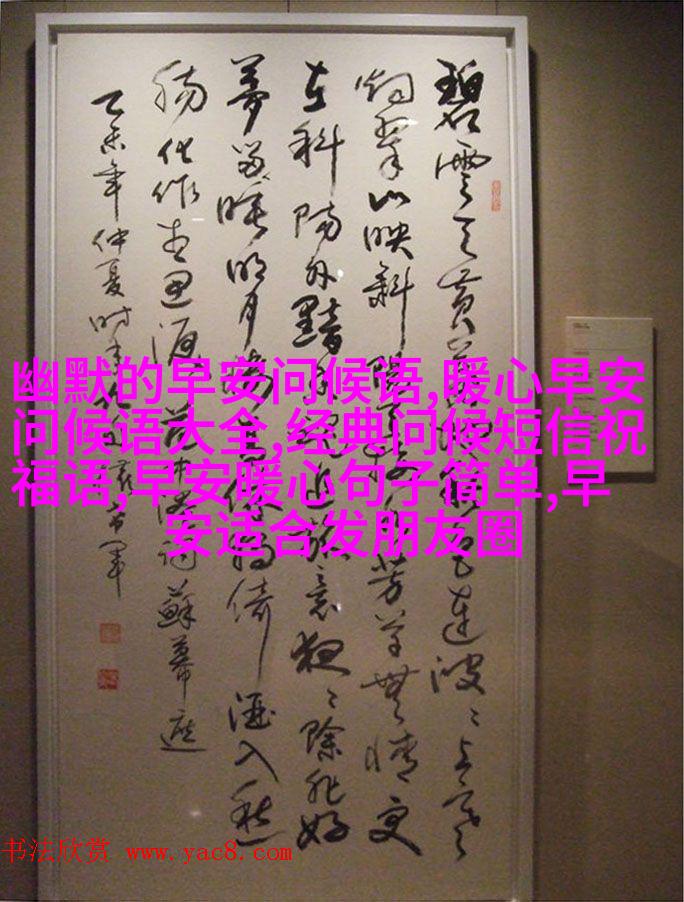 碧雲天黄葉地秋色連波〻上寒
烟翠山映斜陽天接水芳草無情更
在斜陽外黯鄉魂追旅夜〻除非好
夢留睡明月樓高休獨倚酒入愁
腸化作相思淚范仲淹詞蘇幕遮
乙未年仲夏时
幽默的早安问候语,暖心早安
问候语大全,经典问候短信祝
福语,早安暖心句子简单,早
安适合发朋友圈
书法欣赏 www.yac8.com